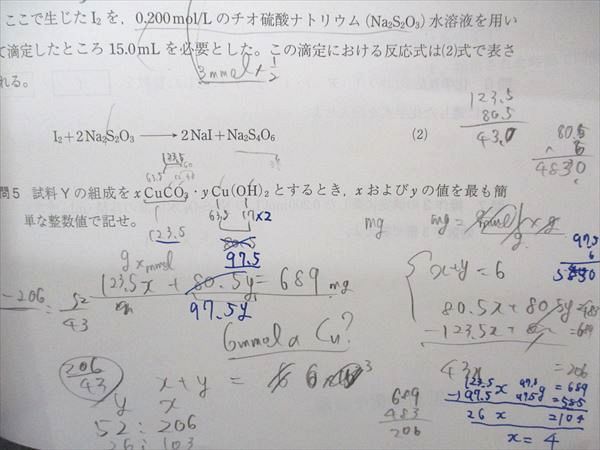 ここで生じたI₂を, 0.200 mol/Lのチオ硫酸ナトリウム(Na₂S₂O₃)水溶液を用い
て滴定したところ15.0 mLを必要とした。この滴定における反応式は(2)式で表さ
れる。
3mmol × 1/2
I₂+2Na₂S₂O₃ ⟶ 2NaI+Na₂S₄O₆ (2)
123.5
80.5
43.0
80.5
× 6
4830
123.5
63.5 60
問5 試料Yの組成を x CuCO₃・y Cu(OH)₂ とするとき, x および y の値を最も簡
単な整数値で記せ。
63.5 17 ×2
123.5
80.5
97.5
mg
97.5
6
5850
g x mmol
123.5x + 80.5y = 689 mg
97.5y
x+y = 6
-206
52
43
80.5x + 80.5y = 483
-123.5x + = 689
43x = 206
6mmol a Cu?
206
43
x+y = 6
y x
52 : 206
26 : 103
689
483
206
123.5x 97.5y = 689
-97.5x 97.5y = 585
26x = 104
x = 4